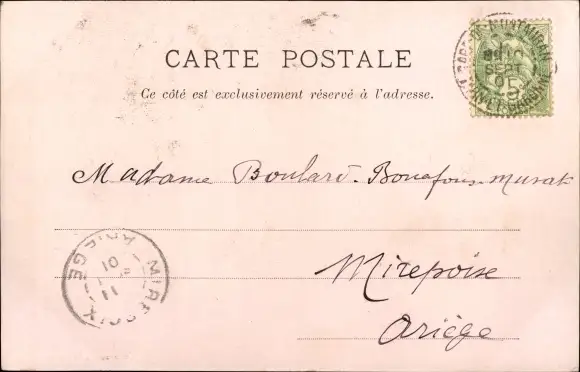 CARTE POSTALE
Ce côté est exclusivement réservé à l'adresse.
Madame Boulard-Bonafous-Murat
Mirepoise
Ariège
MIREPOIX
ARIÈGE
11
01
SEPT
5